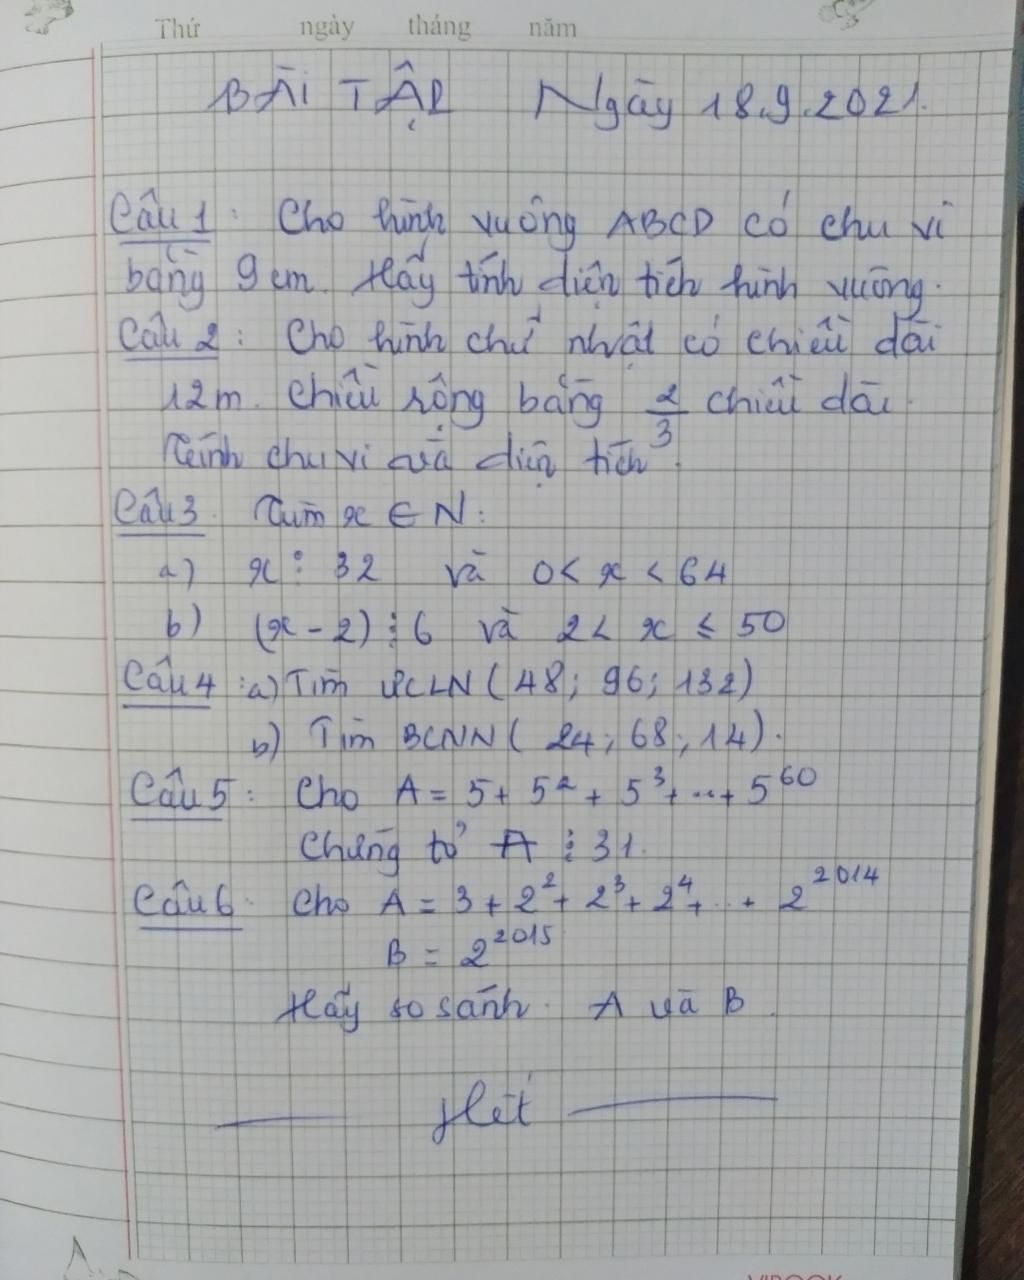 Thứ ngày tháng năm
BÀI TẬP Ngày 18.9.2021.
Câu 1: Cho hình vuông ABCD có chu vi
bằng 9cm. Hãy tính diện tích hình vuông.
Câu 2: Cho hình chữ nhật có chiều dài
12m. Chiều rộng bằng 2/3 chiều dài.
Tính chu vi và diện tích.
Câu 3. Tìm x ∈ N:
a) x ⋮ 32 và 0 < x < 64
b) (x - 2) ⋮ 6 và 2 < x ≤ 50
Câu 4: a) Tìm ƯCLN (48; 96; 132)
b) Tìm BCNN (24; 68; 14).
Câu 5: Cho A = 5 + 5² + 5³ + ... + 5⁶⁰
Chứng tỏ A ⋮ 31.
Câu 6. Cho A = 3 + 2² + 2³ + 2⁴ + ... + 2²⁰¹⁴
B = 2²⁰¹⁵
Hãy so sánh. A và B.
Hết